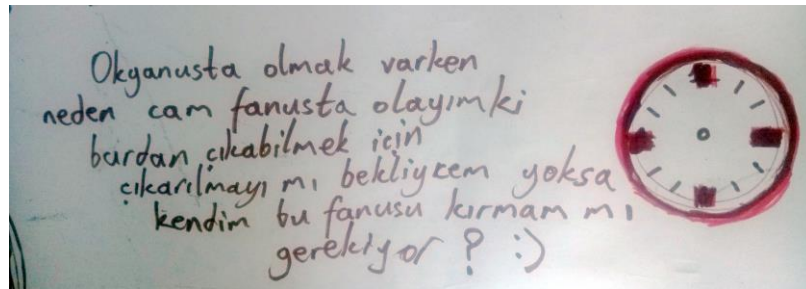 Okyanusta olmak varken
neden cam fanusta olayımki
burdan çıkabilmek için
çıkarılmayı mı bekliycem yoksa
kendim bu fanusu kırmam mı
gerekiyor ? :)